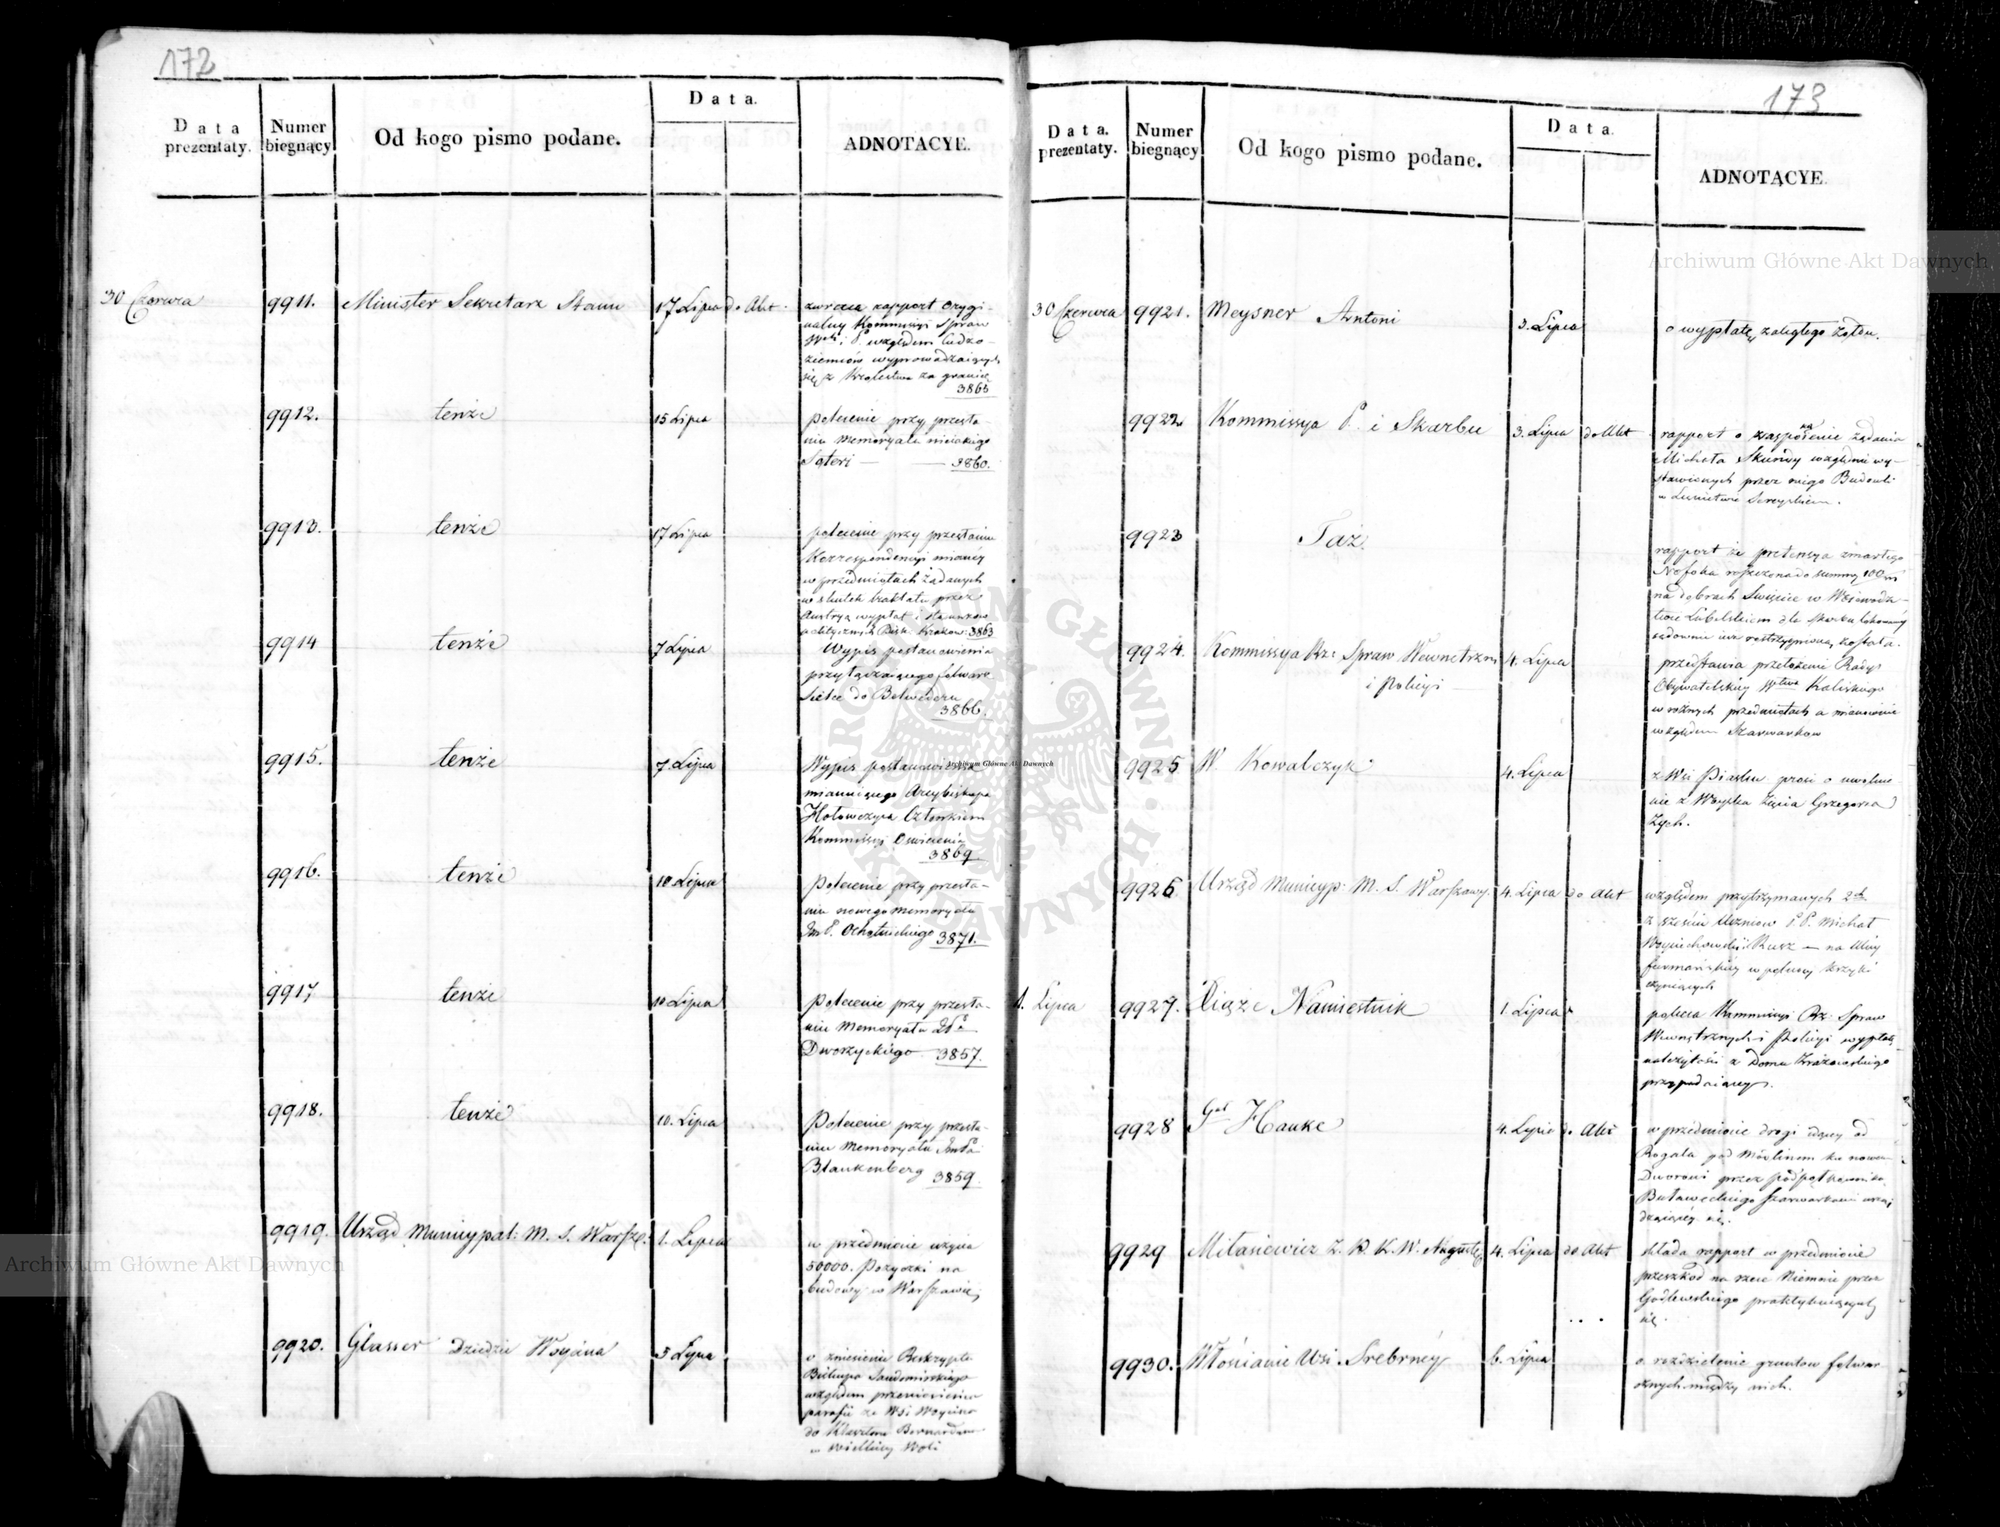 172
Data prezentaty.
Numer biegnący
Od kogo pismo podane.
Data.
ADNOTACYE.
30 Czerwca
9911.
Minister Sekretarz Stanu
17 Lipca
do Akt
zwraca rapport orygi-
nalny Kommissyi Spraw
względem cudzo-
ziemców wyprowadzaiących
się z Królestwa za granicę
3865
9912.
tenże
15 Lipca
polecenie przy przesła
niu memoryału
3860.
9913.
tenże
17 Lipca
polecenie przy przesłaniu
Korrespondencyi
w przedmiotach żądanych
w skutek traktatu przez
Austryą wypłat
3863
9914
tenże
7 Lipca
Wypis postanowienia
przyłączaiącego folwark
Sielce do Belwederu
3866.
9915.
tenże
7. Lipca
Wypis postanowienia
mianuiącego Arcybiskupa
Hołowczyca Członkiem
Kommissyi Oświecenia
3869
9916.
tenże
10 Lipca
Polecenie przy przesła-
niu nowego memoryału
3871.
9917
tenże
10 Lipca
Polecenie przy przesła-
niu memoryału
Dworzyckiego 3857.
9918.
tenże
10. Lipca
Polecenie przy przesła-
niu memoryału
Blankenberg 3859.
9919.
Urząd Municypal: M. S. Warsza:
1. Lipca
w przedmiocie użycia
50000. Pożyczki na
budowy w Warszawie
9920.
Glasser Dziedzic Woycina
3 Lipca
o zniesienie Reskryptu
Biskupa Sandomirskiego
względem przeniesienia
parafii ze Wsi Woycina
do Klasztoru Bernardynów
w Wielkiey Woli
173
Data. prezentaty.
Numer biegnący
Od kogo pismo podane.
Data.
ADNOTACYE.
30 Czerwca
9921.
Meysner Antoni
3. Lipca
o wypłatę zaległego żołdu.
9922
Kommissya P. i Skarbu
3. Lipca
do Akt
rapport o zaspokoienie żądania
Michała względem wy-
stawionych przez niego Budowli
9923
Taż.
rapport że pretensya zmarłego
do summy
na dobrach w Woiewódz-
twie Lubelskiem dla Skarbu
sądownie iuż rozstrzygniona została.
9924.
Kommissya Rz: Spraw Wewnetrzn
i Policyi
4. Lipca
przedstawia przełożenie Rady
Obywatelskiey Wtwa Kaliskiego
w różnych przedmiotach a mianowicie
względem Szarwarków
9925
W. Kowalczyk
4. Lipca
z Wsi Piasku prosi o uwolnie
nie z Woyska Zięcia Grzegorza
Zych.
9926
Urząd Municyp: M. S. Warszawy.
4. Lipca
do Akt
względem przytrzymanych 2ch
z sześciu Uczniów P. P. Michał
Woyciechowski i Rusz — na Ulicy
furmańskiey w połowy krzyki
czyniących
1. Lipca
9927.
Xiąże Namiestnik
1. Lipca
poleca Kommissyi Rz: Spraw
Wewnętrznych i Policyi wypłatę
należytości z Domu
przypadaiącey.
9928
Gał Hauke
4. Lipca
do Akt
w przedmiocie drogi idącey od
Rogala pod Modlinem ku nowe-
Dworowi przez Podpółkownika
9929
Miłasiewicz Z. K. K. W. Augustow
4. Lipca
do Akt
składa rapport w przedmiocie
przeszkod na rzece Niemnie przez
Godlewskiego praktykuiących
się.
9930.
Włościanie Wsi Srebrnéy
6. Lipca
o rozdzielenie gruntów folwar
cznych między nich.
Archiwum Główne Akt Dawnych
Archiwum Główne Akt Dawnych
Archiwum Główne Akt Dawnych
ARCHIWUM GŁÓWNE AKT DAWNYCH